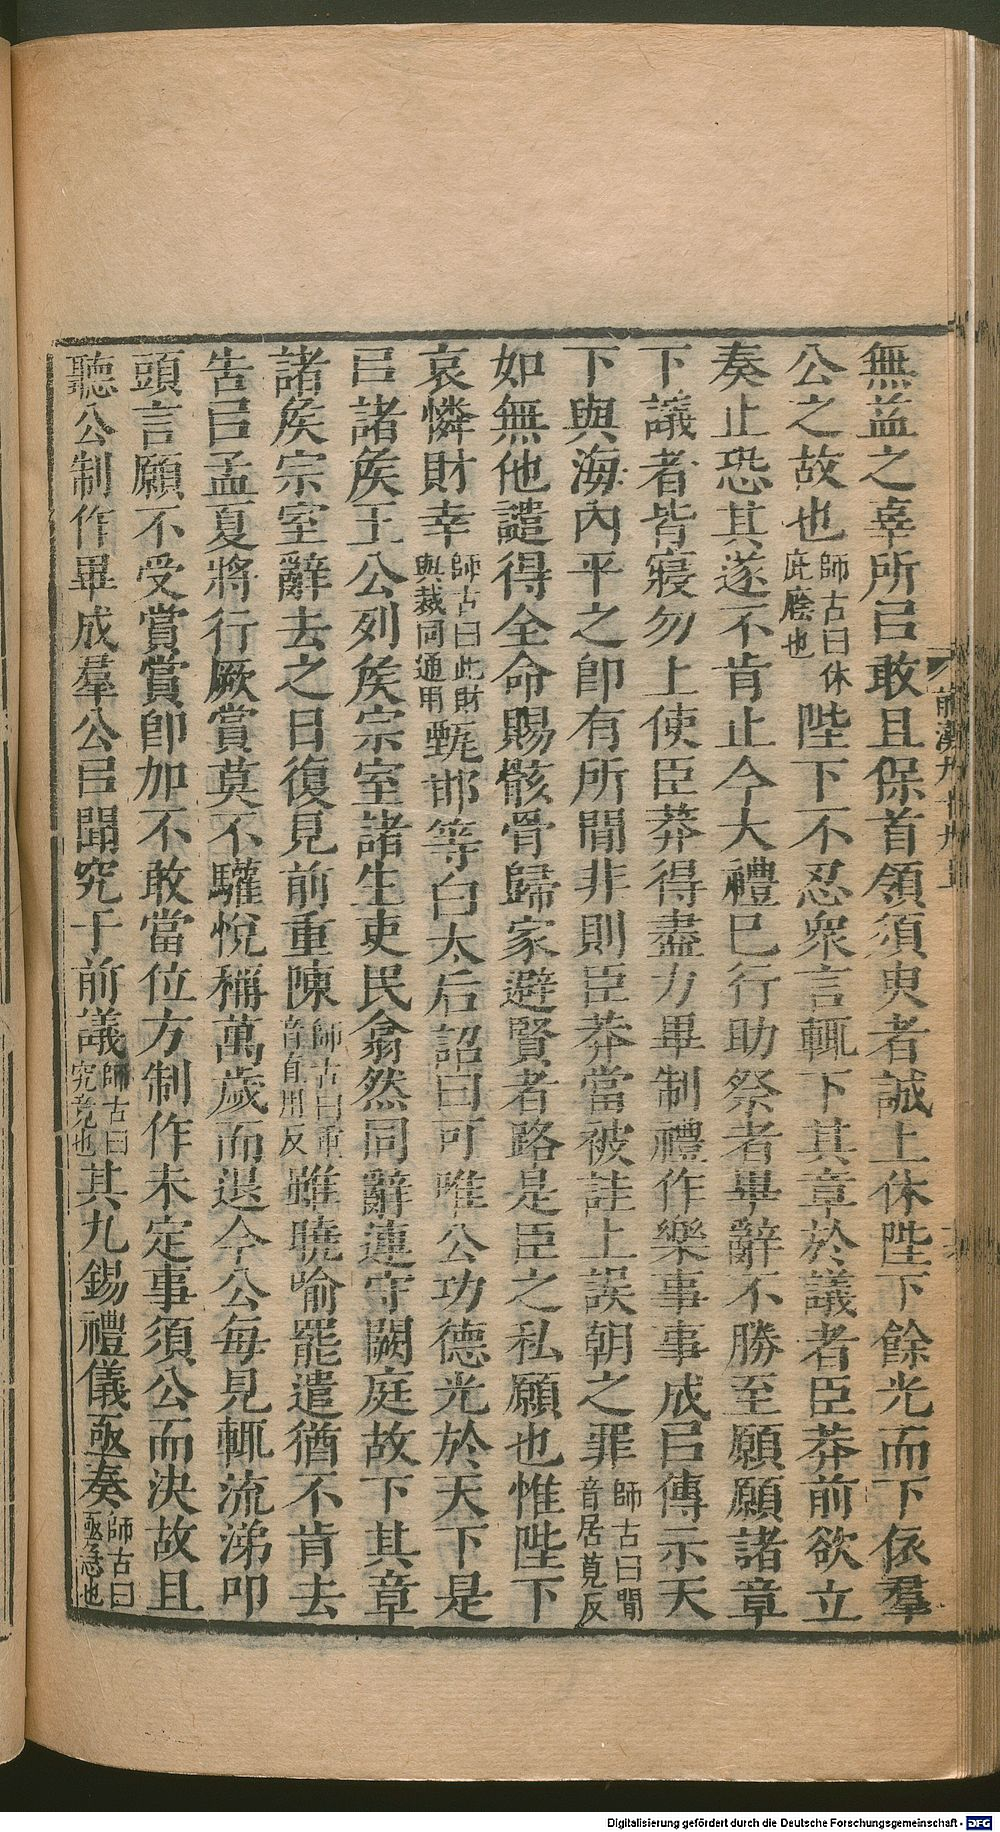 無益之辜所㠯敢且保首領須臾者誠上休陛下餘光而下依羣
公之故也師古曰休庇廕也陛下不忍衆言輒下其章於議者臣莽前欲立
奏止恐其遂不肯止今大禮已行助祭者畢辭不勝至願願諸章
下議者皆寢勿上使臣莽得盡力畢制禮作樂事事成㠯傳示天
下與海內平之卽有所間非則臣莽當被詿上誤朝之罪師古曰間音居莧反
如無他譴得全命賜骸骨歸家避賢者路是臣之私願也惟陛下
哀憐財幸師古曰此財與裁同通用甄邯等白太后詔曰可唯公功德光於天下是
㠯諸矦王公列矦宗室諸生吏民翕然同辭連守闕庭故下其章
諸矦宗室辭去之日復見前重陳師古曰重音直用反雖曉喻罷遣猶不肯去
告㠯孟夏將行厥賞莫不驩悅稱萬歲而退今公每見輒流涕叩
頭言願不受賞賞卽加不敢當位方制作未定事須公而決故且
聽公制作畢成羣公㠯聞究于前議師古曰究竟也其九錫禮儀亟奏師古曰亟急也
Digitalisierung gefördert durch die Deutsche Forschungsgemeinschaft - DFG